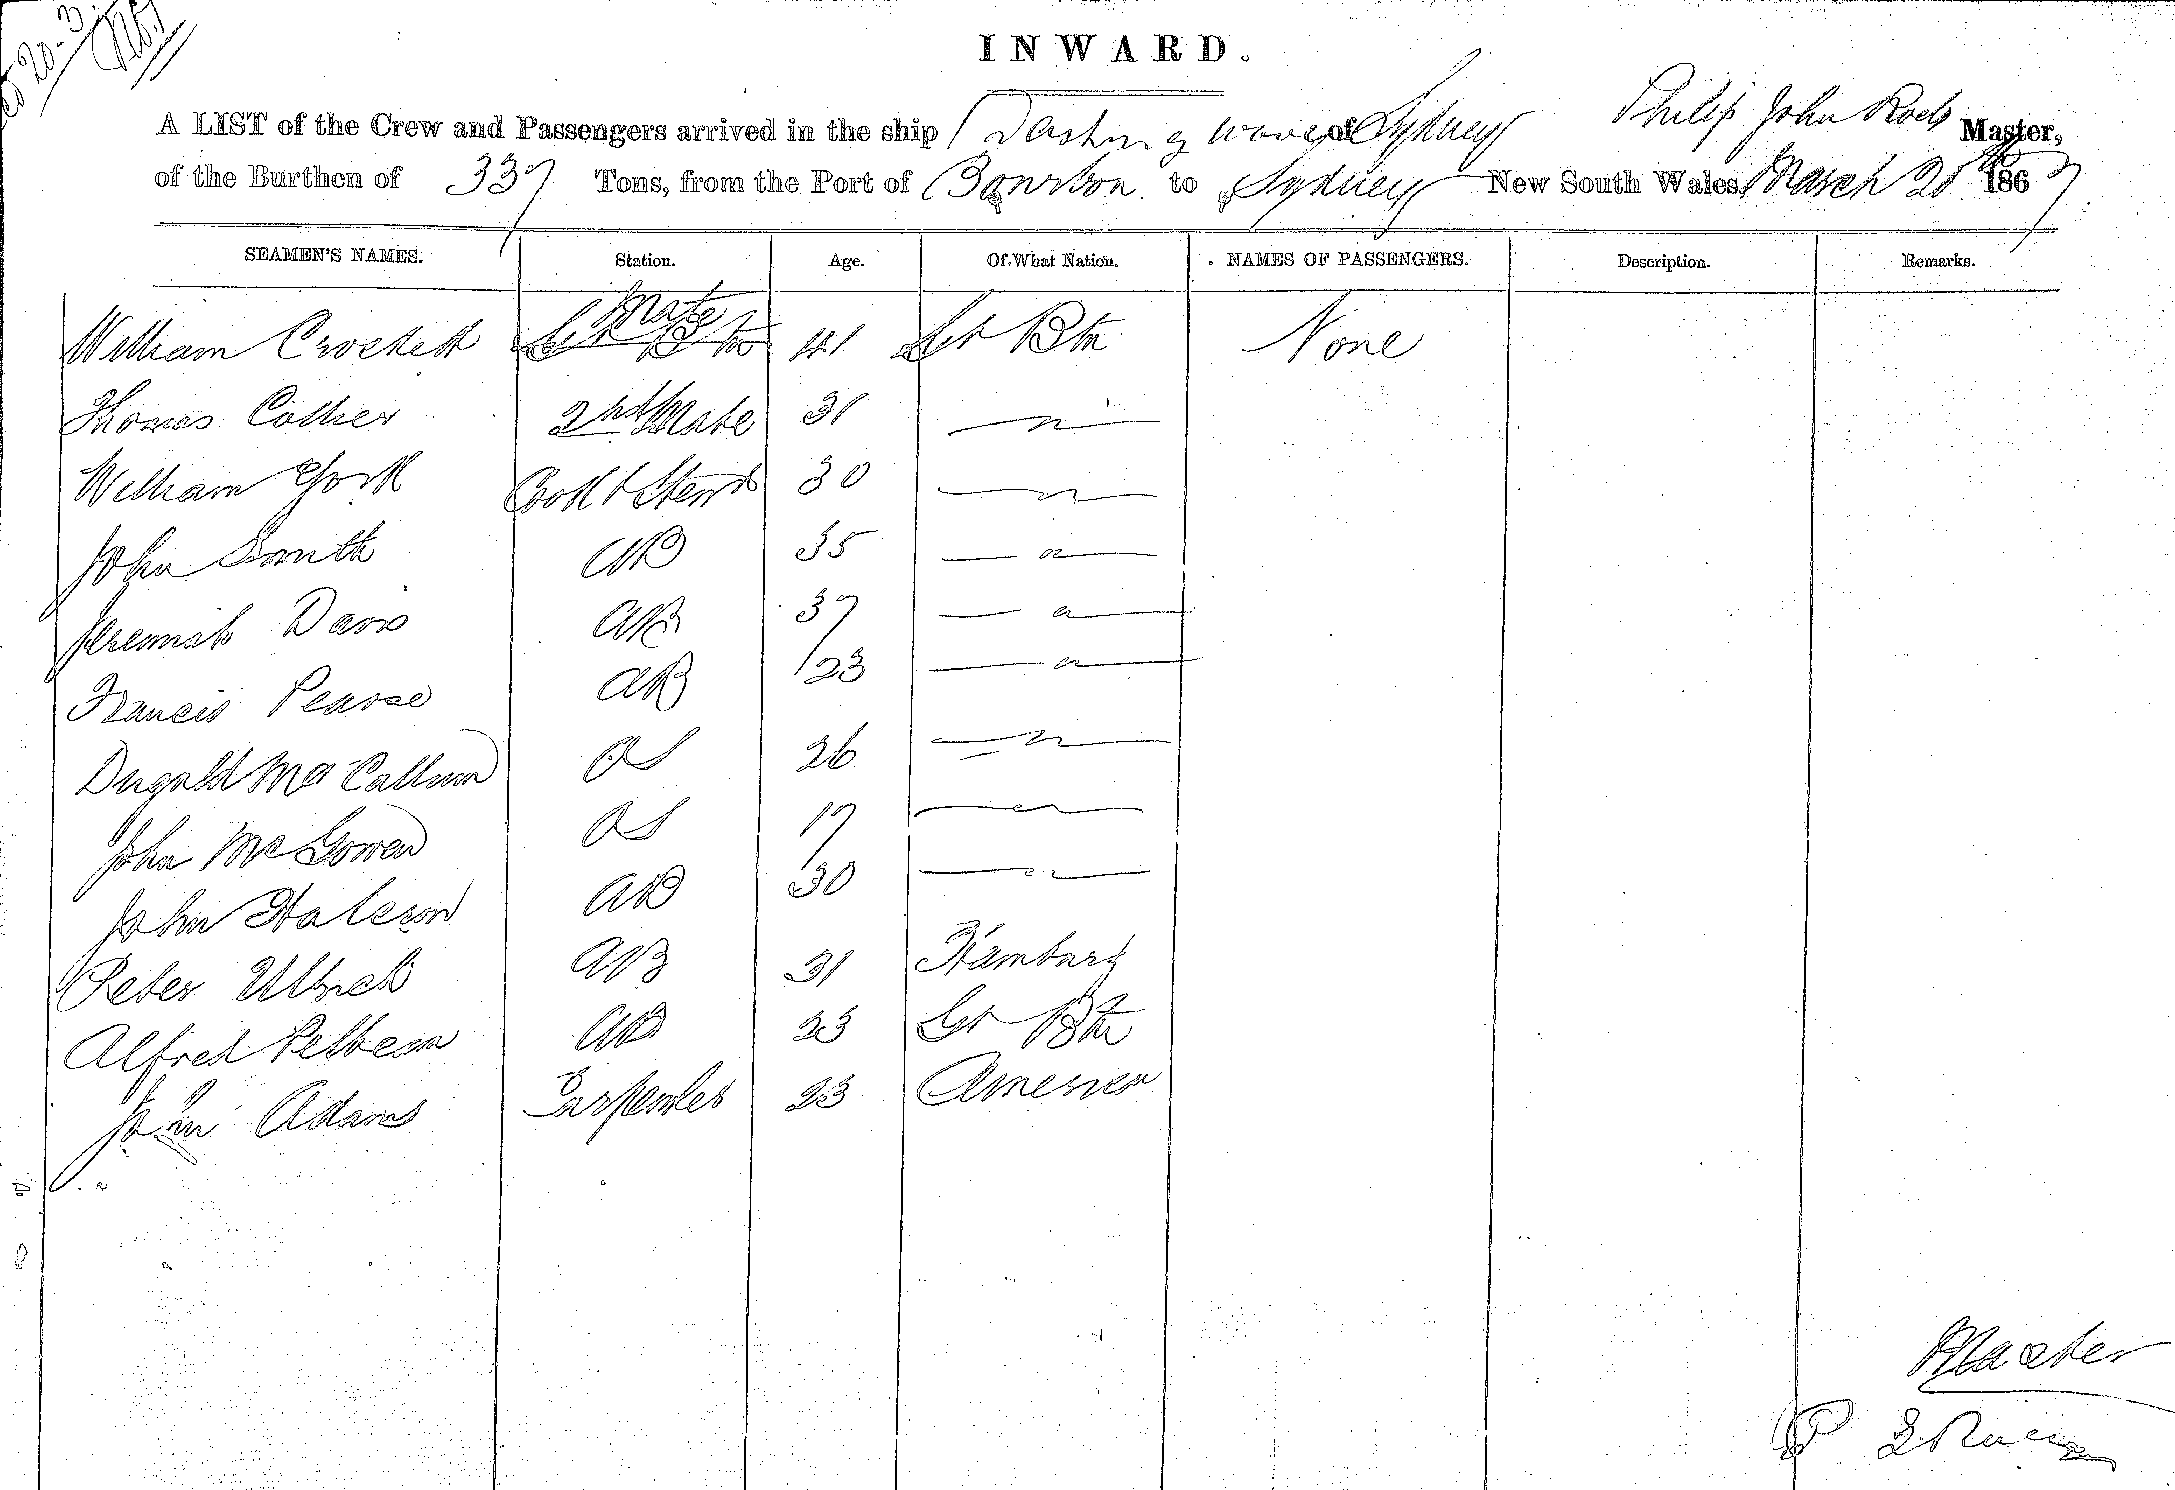 INWARD.
A LIST of the Crew and Passengers arrived in the ship Dashing Wave of Sydney Philip John Master,
of the Burthen of 337 Tons, from the Port of Bourbon to Sydney New South Wales March 20th 1867
SEAMEN'S NAMES. Station. Age. Of What Nation. NAMES OF PASSENGERS. Description. Remarks.
William Crockett Mate 41 Gt Btn None
Thomas Collier 2nd Mate 31 — " —
William York Cook & Stewd 30 — " —
John Smith AB 35 — " —
Jeremiah Davis AB 37 — " —
Francis Pearce AB 23 — " —
Dugald McCallum OS 26 — " —
John McGowen OS 17 — " —
John AB 30 — " —
Peter Ulbrick AB 31 Hamburg
Alfred Pelbeam AB 23 Gt Btn
John Adams Carpenter 23 America
Master
P J